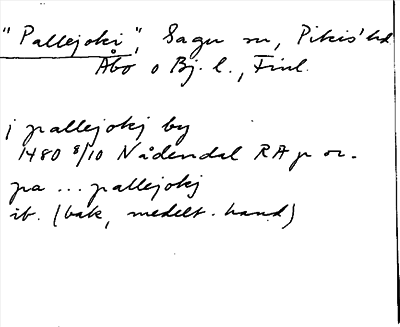 "Pallejoki", Sagu sn, Pikis' hd
Åbo o Bj. l., Finl.
j pallejokj by
1480 8/10 Nådendal RA p or.
pa ... pallejokj
ib. (bak, medelt. hand)